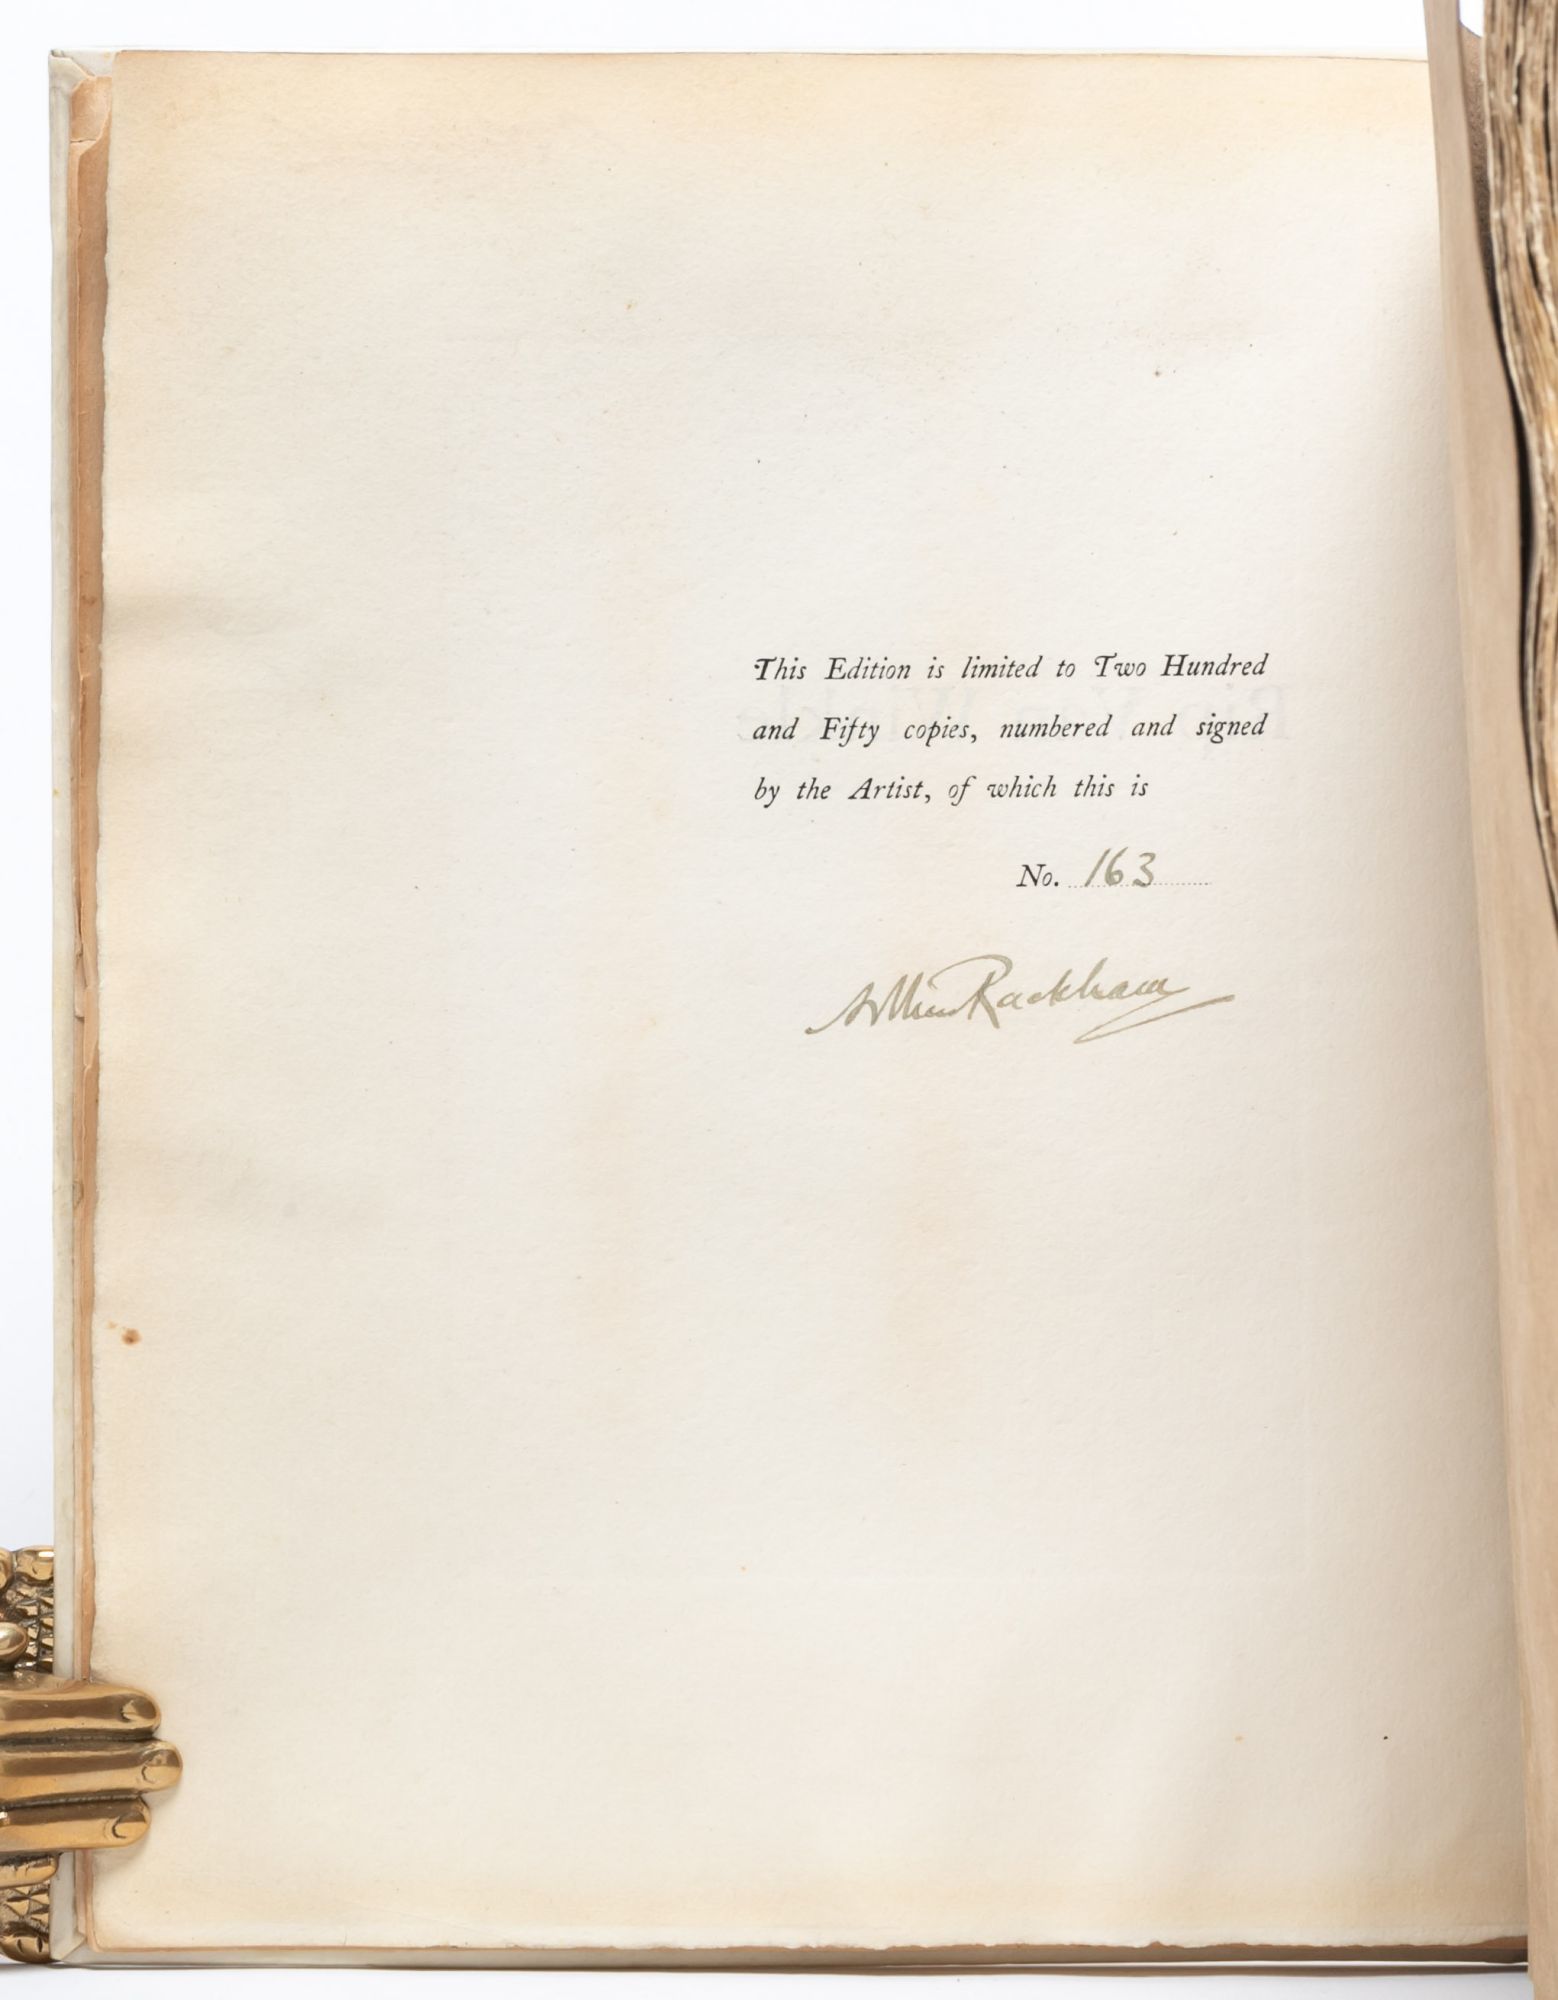 This Edition is limited to Two Hundred
and Fifty copies, numbered and signed
by the Artist, of which this is
No. 163
Arthur Rackham